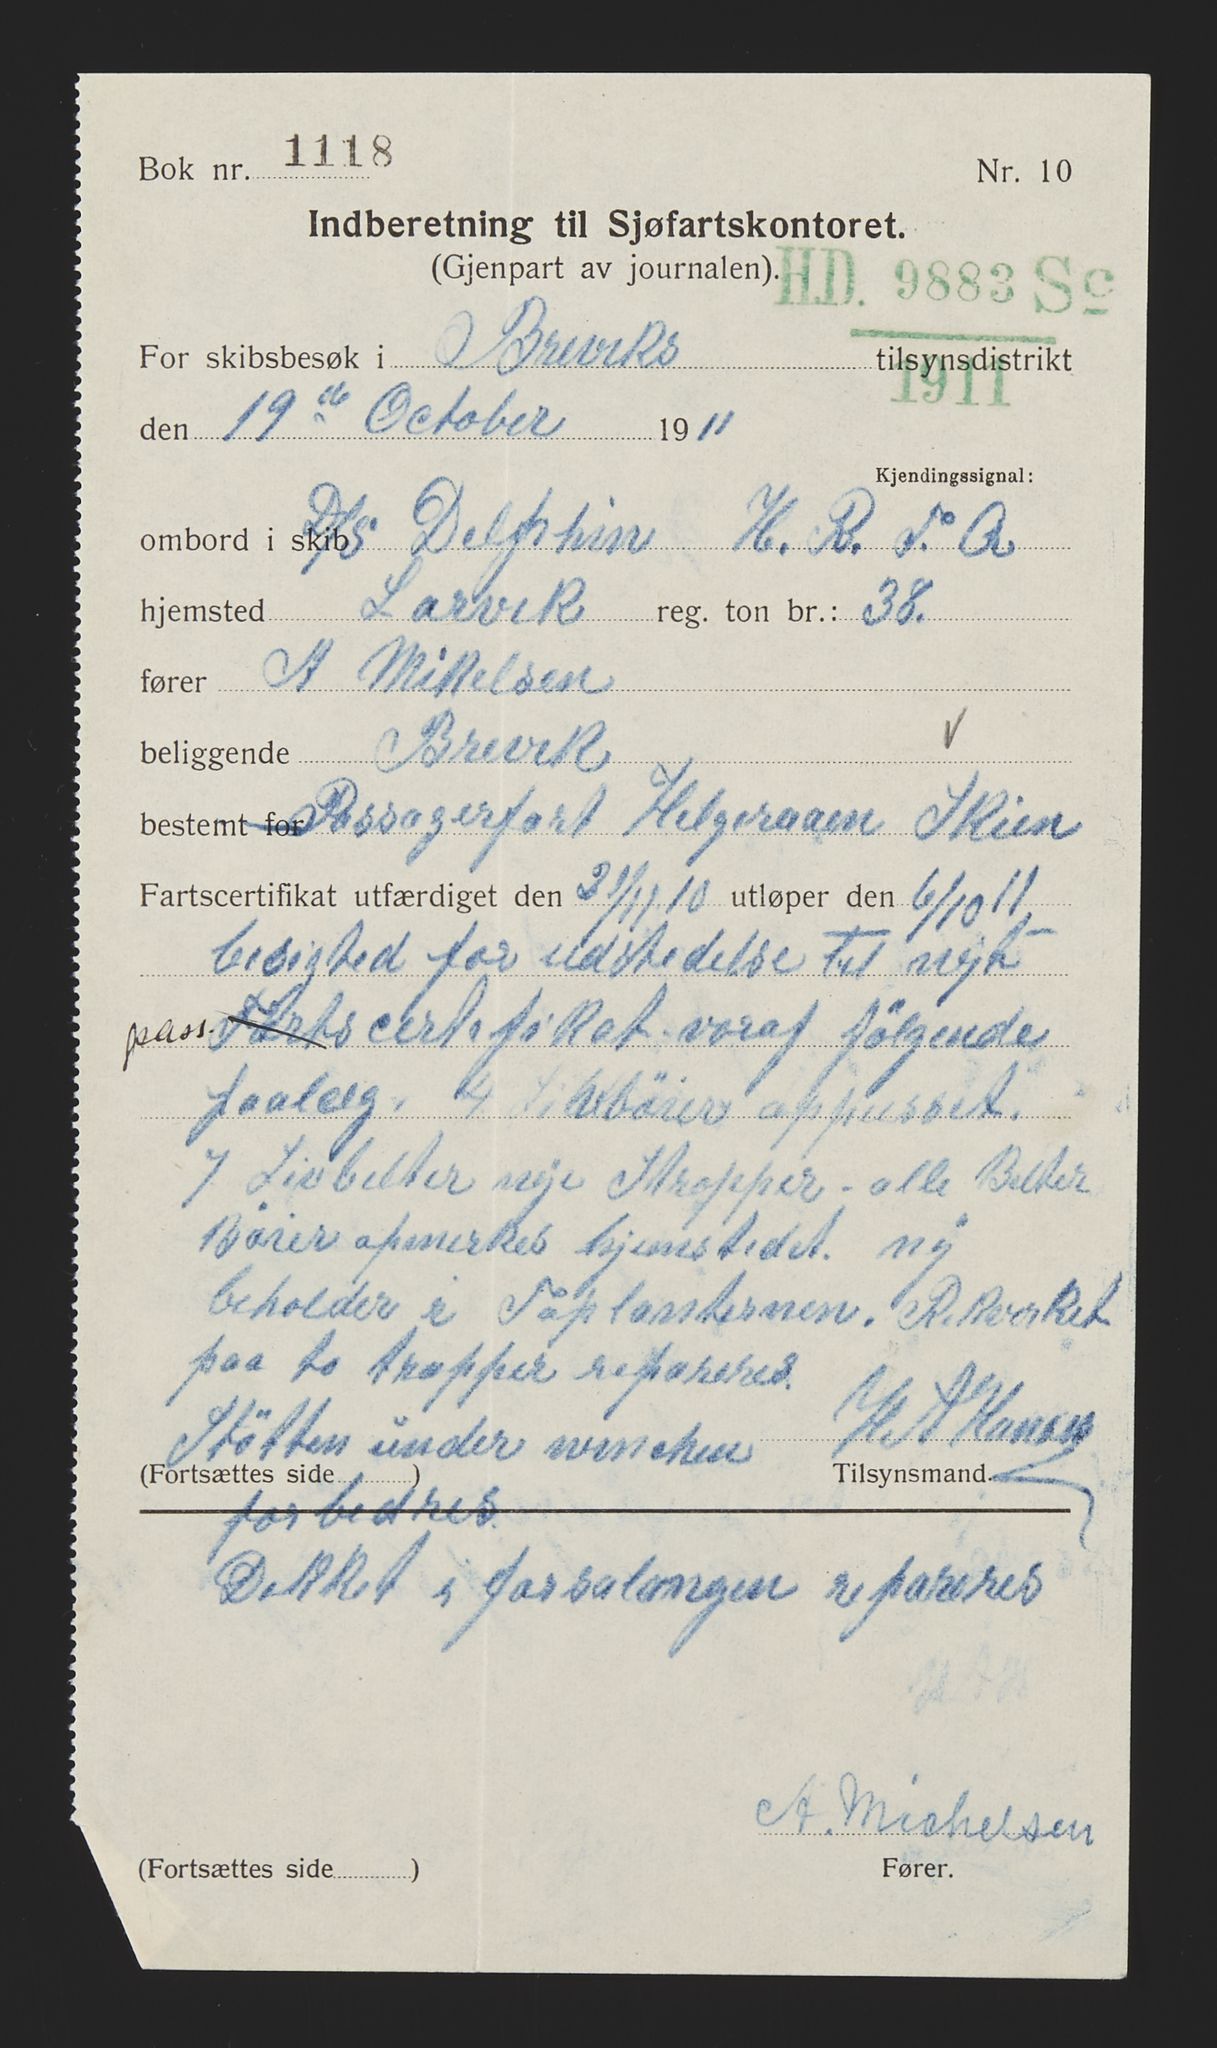 Bok nr. 1118 Nr. 10
Indberetning til Sjøfartskontoret.
(Gjenpart av journalen).
H.D. 9883 Sc
1911
For skibsbesøk i Breviks tilsynsdistrikt
den 19de October 1911
Kjendingssignal:
ombord i skib D/S Delphin H. R. F. A
hjemsted Larvik reg. ton br.: 38.
fører A Mikelsen
beliggende Brevik
bestemt for Passagerfart Helgeraaen Skien
Fartscertifikat utfærdiget den 21/11 10 utløper den 6/10 11
besigted for udstedelse til nyt
pass. Farts certifikat voraf fölgende
paaleg. 4 Livböier oppusset.
7 Livbelter nye Stropper - alle Belter
Böier opmerkes hjemstedet. ny
beholder i Toplanternen. Rekverket
paa to trapper repareres.
Stötten under winchen
H A Hansen
(Fortsættes side ) Tilsynsmand.
forbedres.
Dekket i forsalongen repareres
A. Michelsen
(Fortsættes side ) Fører.